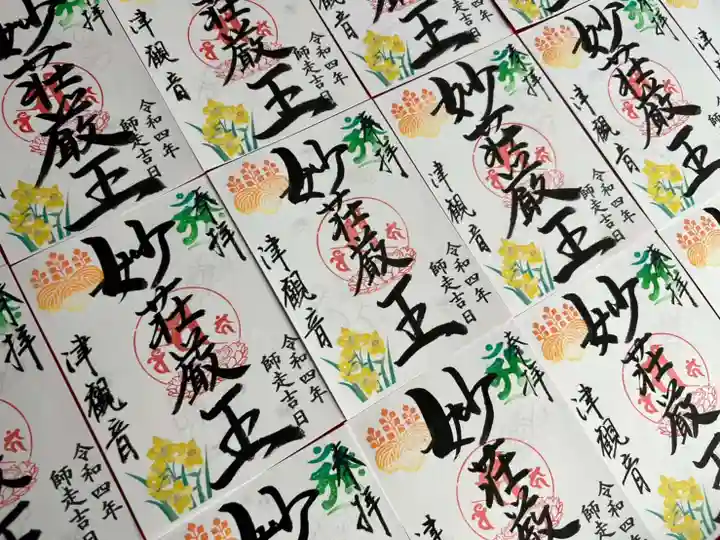 奉拝
妙荘厳王
令和四年
師走吉日
津觀音